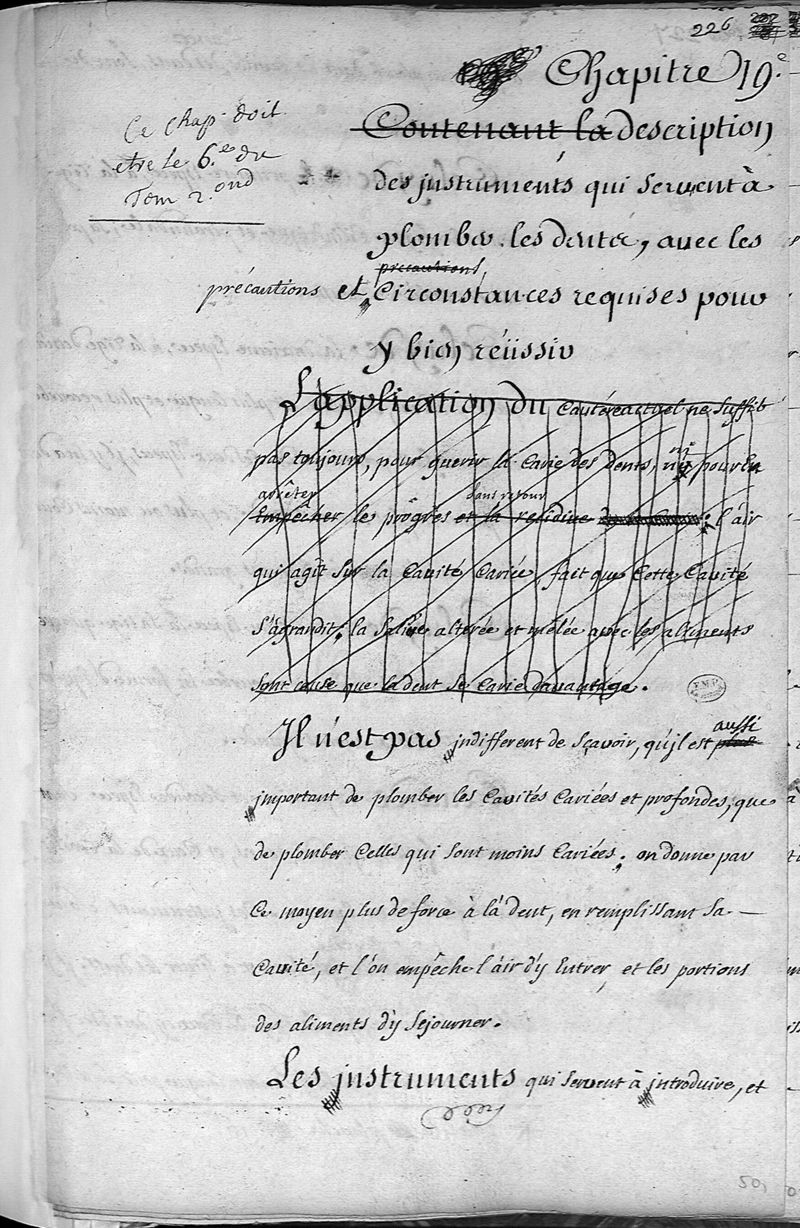 226
Chapitre 19.e
Ce Chap. doit
etre le 6.e du
Tom 2.ond
Contenant la description
des jnstruments qui servent à
plomber les dents, avec les
precautions
précautions et circonstances requises pour
y bien réüssir
L'application du Cautere actuel ne suffit
pas toujours, pour guerir la Carie des dents, ny pour en
arrêter sans retour
Empêcher le progrès et la recidive : l'air
qui agit sur la Cavité Cariée, fait que Cette Cavité
s'agrandit; la Salive alterée et mêlée avec les aliments
sont cause que la dent se Carie davantage.
aussi
Il n'est pas jndifferent de sçavoir, qu'jl est plus
jmportant de plomber les Cavités Cariées et profondes, que
de plomber Celles qui sont moins Cariées; on donne par
Ce moyen plus de force à la dent, en remplissant sa
Cavité, et l'on empêche l'air d'y Entrer, et les portions
des aliments d'y Sejourner.
Les jnstruments qui servent à jntroduire, et
50,